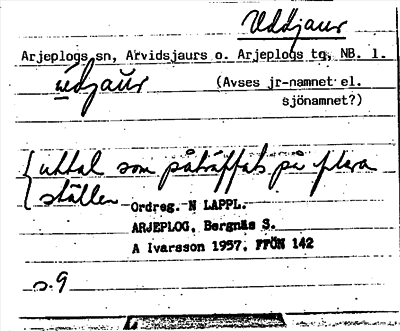 Uddjaur
Arjeplogs sn, Arvidsjaurs o. Arjeplogs tg, NB. l.
údjaŭr (Avses jr-namnet el.
sjönamnet?)
uttal som påträffats på flera
ställen
Ordreg. N LAPPL.
ARJEPLOG, Bergnäs S.
A Ivarsson 1957, FFÖN 142
s. 9